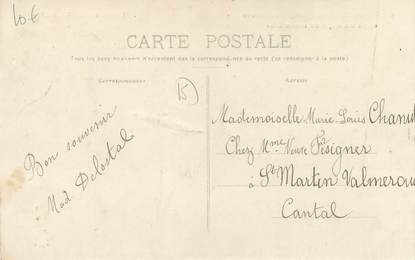 10€
CARTE POSTALE
Tous les pays étrangers n'acceptent pas la correspondance au recto (se renseigner à la poste)
Correspondance
Adresse
15
Bon souvenir
Mad. Delestal
Mademoiselle Marie-Louis Chanut
Chez Mme Veuve
à St Martin Valmeroux
Cantal